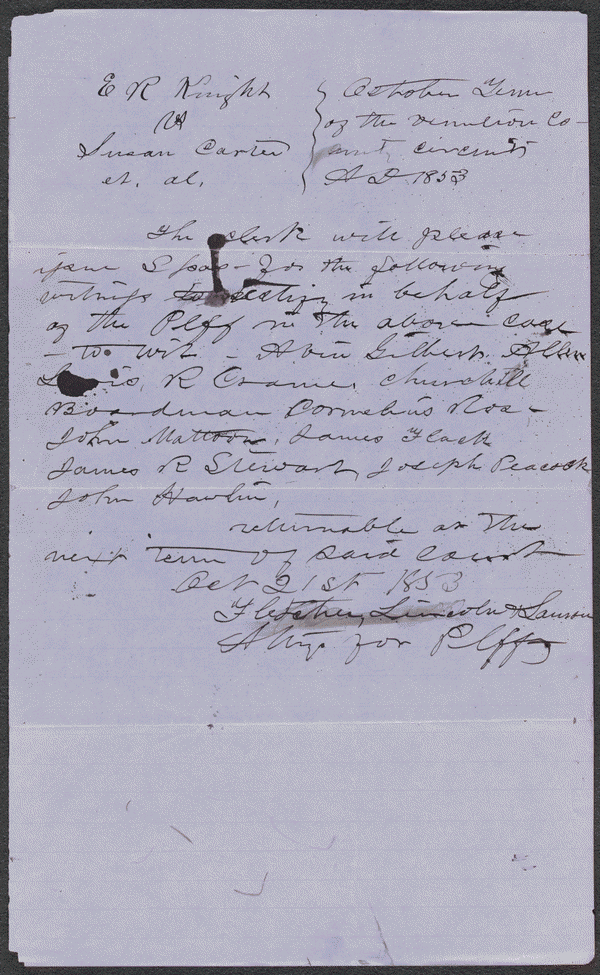 E R Knight
vs
Susan Carter
et. al.
October Term
of the Vermilion Co-
unty circuit
A D 1853
The clerk will please
issue Spas- for the following
witnesss to testify in behalf
of the Plff in the above case
- to wit - Alvin Gilbert. Allen
Lewis, R Cramer, churchill
Boardman Cornelius Rose-
John Mattoon, James Flack
James R Stewart, Joseph Peacock
John Hawlin,
returnable at the
next term of said court
Oct 21st 1853
Fletcher, Lincoln & Lamon
Attys for Plff